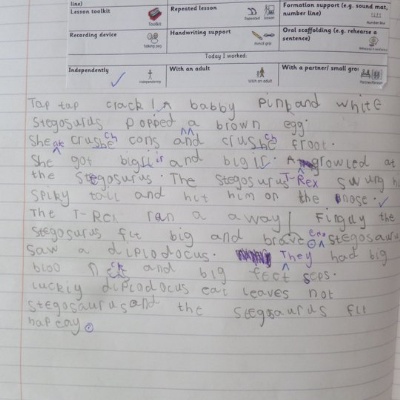 line)
Lesson toolkit
Repeated lesson
Formation support (e.g. sound mat, number line)
Recording device
Handwriting support
Oral scaffolding (e.g. rehearse a sentence)
Today I worked:
Independently
With an adult
With a partner/ small
Tap tap crack! A babby pink and white
stegosulus popped a brown egg.
She crushe cons and crushe froot.
She got biggir and biggir. A growled at
the Stegosurus. The stegosurus T-Rex swung h
spiky tail and hit him on the nose.
The T-Rex ran a away! Finguy the
Stegosurus flt big and brave. stegosaurus
saw a diplodocus. They had big
neck and big feet
luckly diplodocus eat leaves not
stegosaurus and the stegosaurus flt
happy.